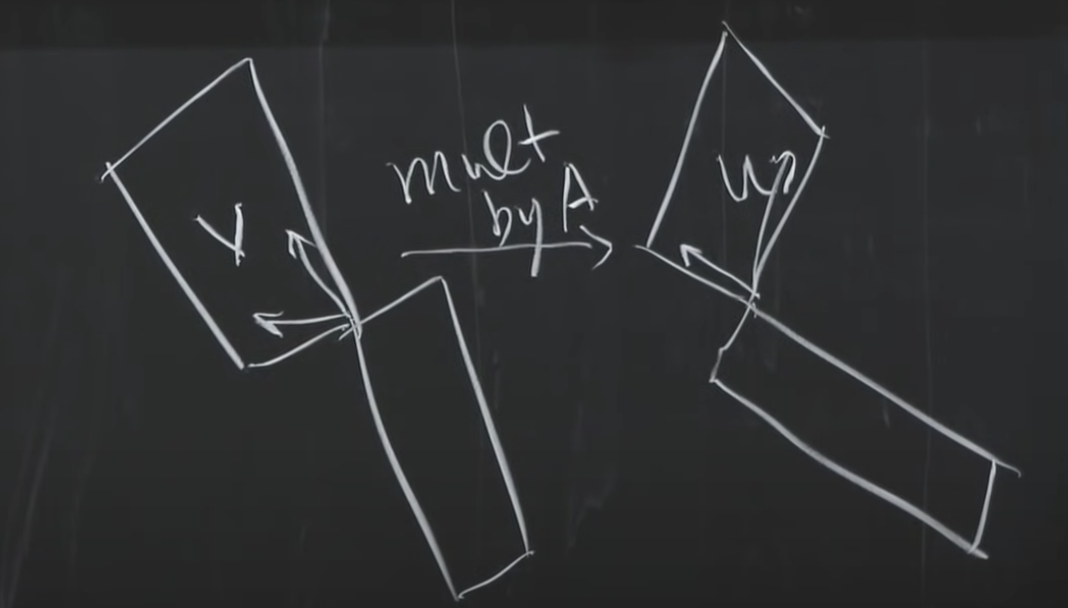 V
mult
by A
U